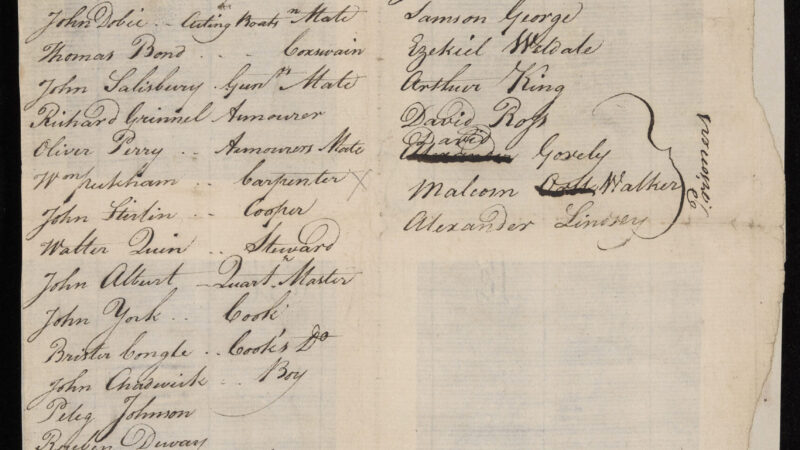 John Dobie .. Acting Boatsn Mate
Thomas Bond .. . Coxswain
John Salisbury . Gunrs Mate
Richard Grinnel Armourer
Oliver Perry .. Armourers Mate
Wm peckham .. Carpenter x
John Stirlin .. Cooper
Walter Quin .. Steward
John Albert - Quartr Master
John York .. Cook
Brister Congle .. Cook's Do
John Chadwick .. Boy
Peleg Johnson
Reuben Devay
Samson George
Ezekiel Weldale
Arthur King
David Ross
David
Govely
Malcom Walker
Alexander Lindsey